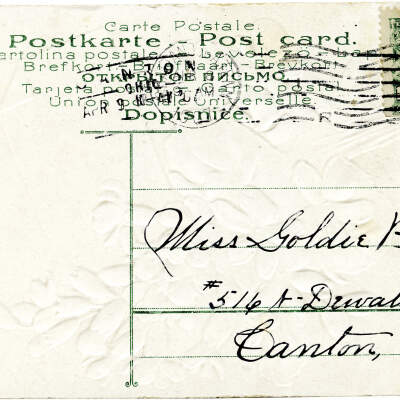 Carte Postale.
Postkarte - Post card.
Cartolina postale - Levelező-Lap
Brefkort - Briefkaart - Brevkort
ОТКРЫТОЕ ПИСЬМО.
Tarjeta postal - Carto postal
Union postale Universelle
Dopisnice.
OHIO
Miss Goldie B
#516 N-Dewal
Canton,